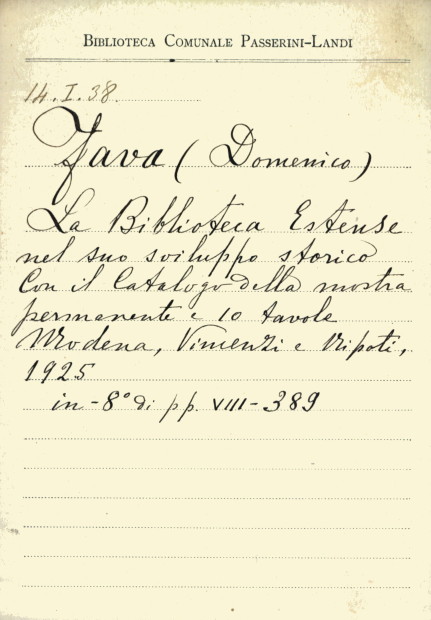 BIBLIOTECA COMUNALE PASSERINI-LANDI
14.I.38.
Fava (Domenico)
La Biblioteca Estense
nel suo sviluppo storico
Con il Catalogo della mostra
permanente e 10 tavole
Modena, Vincenzi e Nipoti,
1925
in-8° di pp. VIII-389